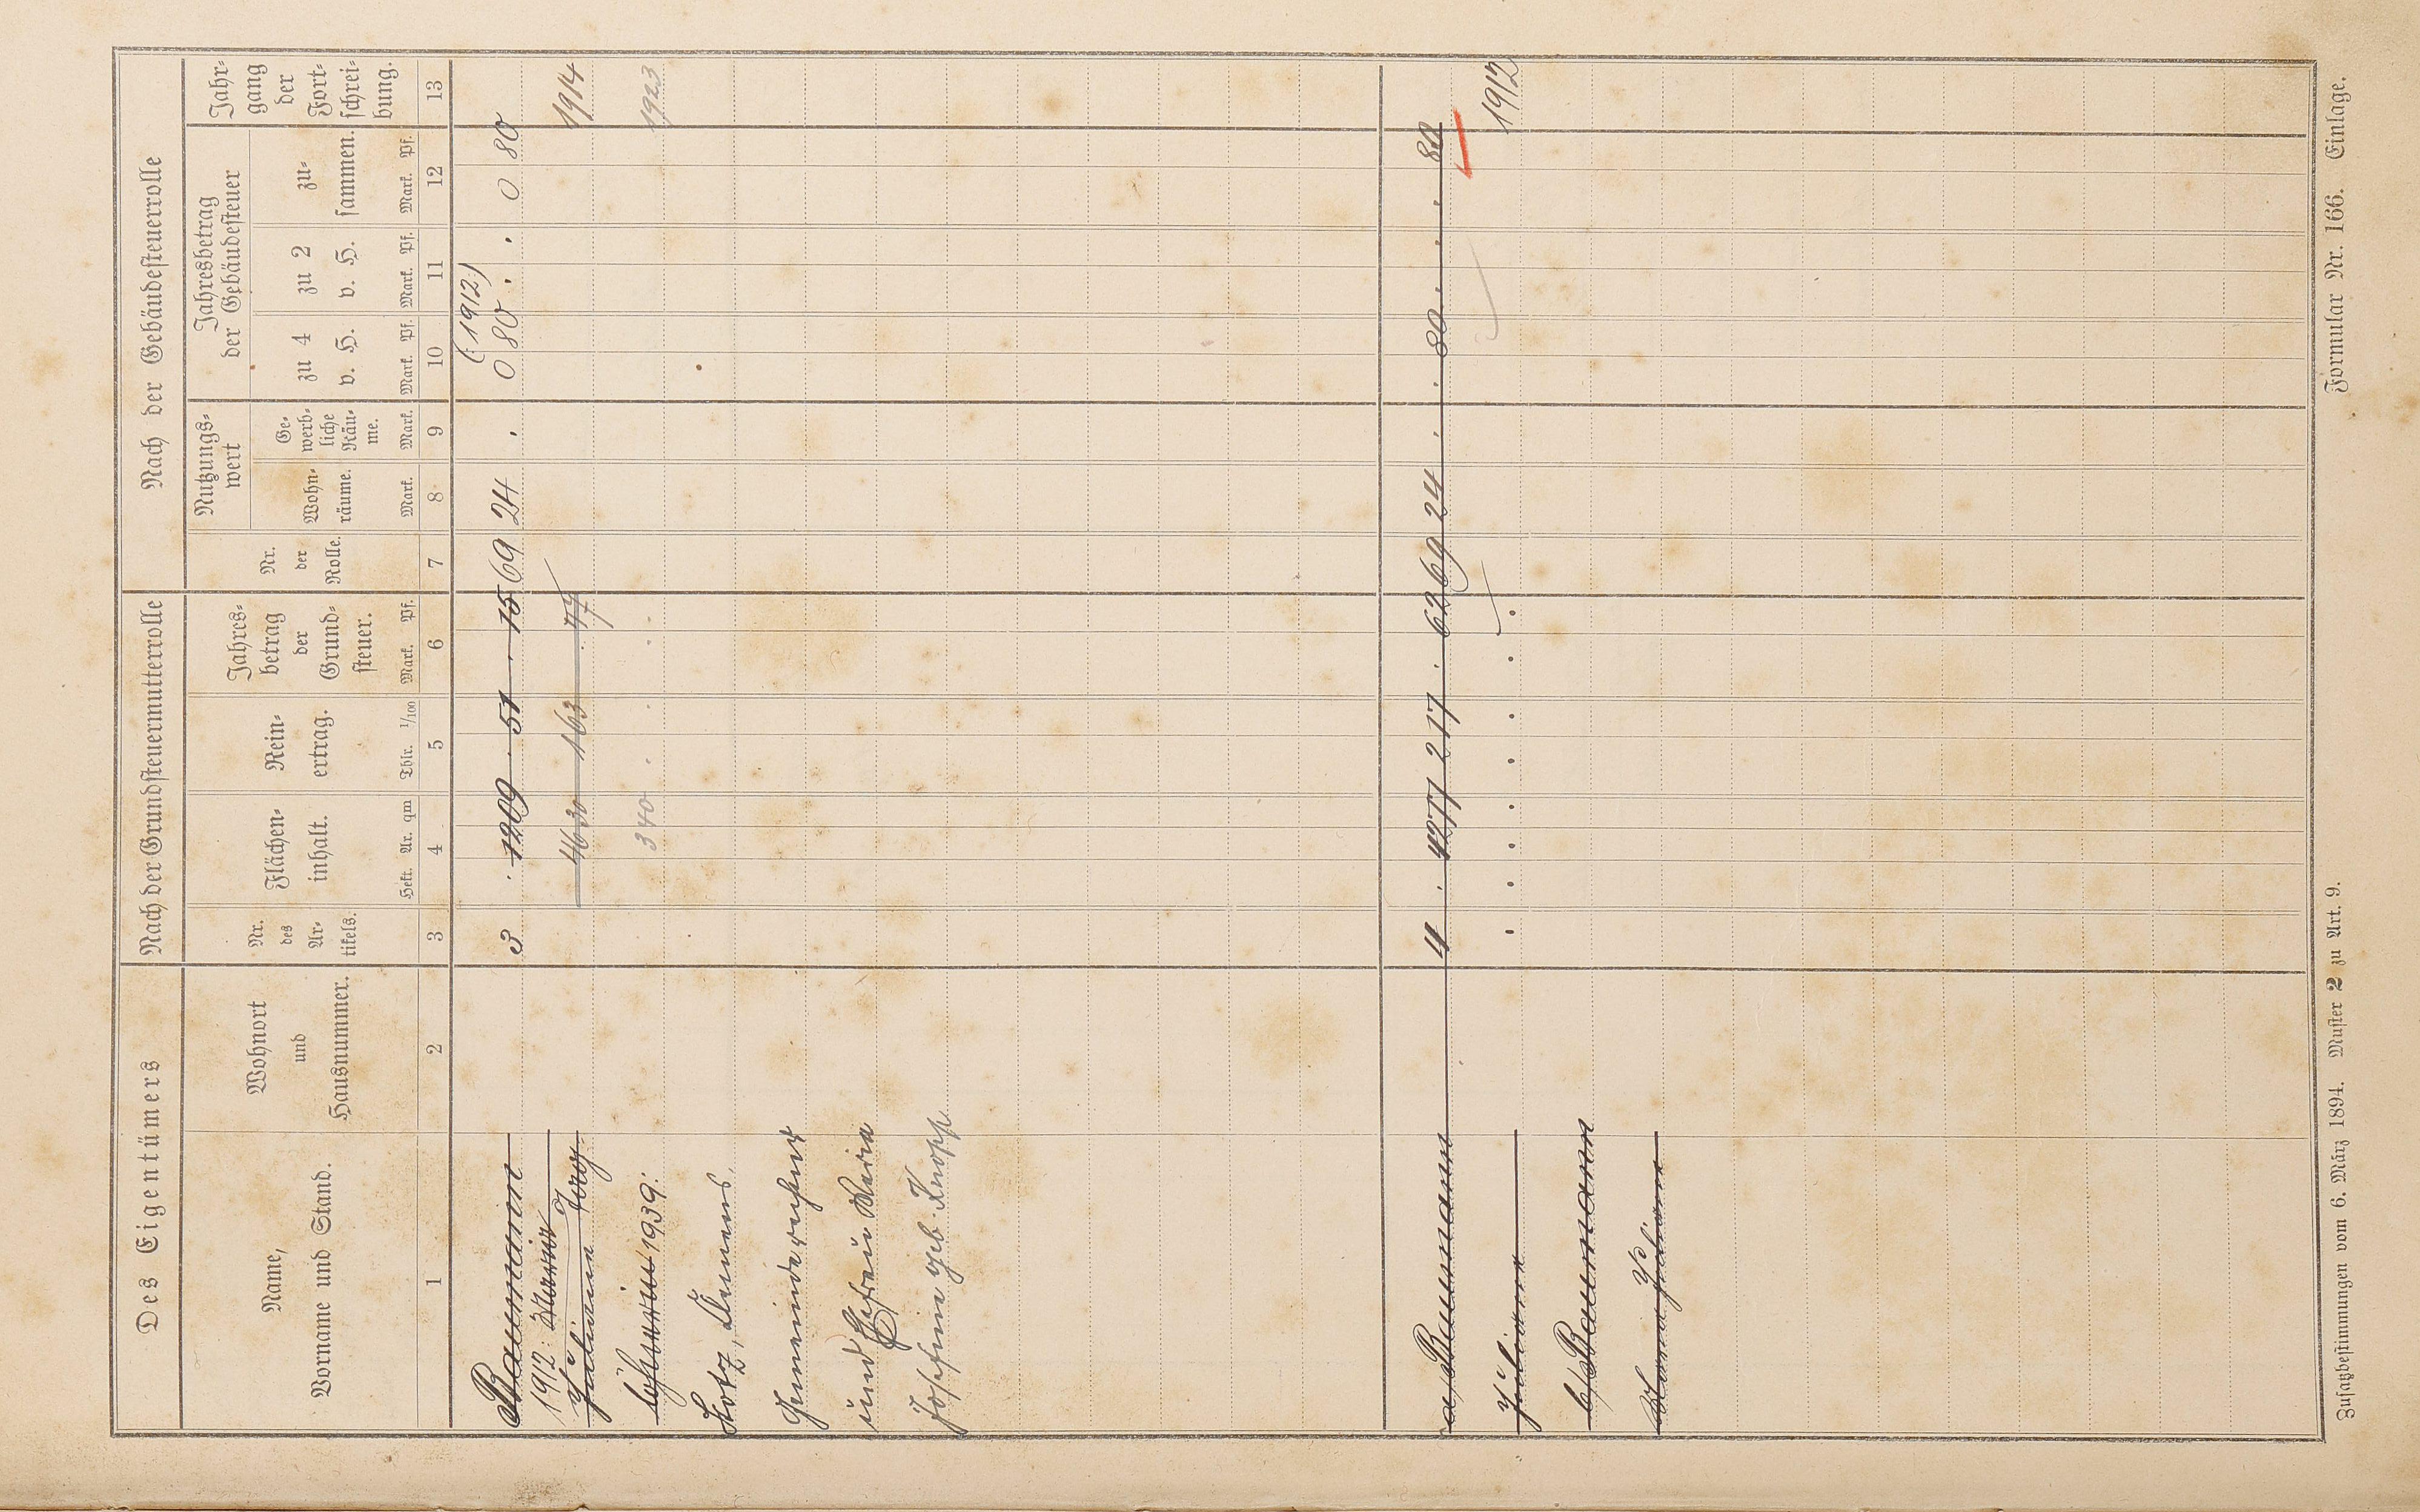 Des Eigentümers
Nach der Grundsteuermutterrolle
Nach der Gebäudesteuerrolle
Name,
Vorname und Stand.
Wohnort
und
Hausnummer.
Nr.
des
Ar-
tikels.
Flächen-
inhalt.
Hekt. Ar. qm
Rein-
ertrag.
Thlr. 1/100
Jahres-
betrag
der
Grund-
steuer.
Mark. Pf.
Nr.
der
Rolle.
Nutzungs-
wert
Wohn-
räume.
Mark.
Ge-
werb-
liche
Räu-
me.
Mark.
Jahresbetrag
der Gebäudesteuer
zu 4
v. H.
Mark. Pf.
zu 2
v. H.
Mark. Pf.
zu-
sammen.
Mark. Pf.
Jahr-
gang
der
Fort-
schrei-
bung.
1 2 3 4 5 6 7 8 9 10 11 12 13
(:1912:)
Baumann 3 . 1209 . 51 . 15 69 24 . 0 80 . . 0 80
1912:
Juliane 4630 163 . 47 1914
1939: 340 . . . . 1923
Kotz, Clemens,
Gemeinderechner
und Ehefrau Maria
Josefine geb. Knopp
a/ Baumann 4 . 4277 217 . 62 69 24 . . 80 . . . 80
Juliane . . . . . . . . 1912
b/ Baumann
Maria Juliane
Zusatzbestimmungen vom 6. März 1894. Muster 2 zu Art. 9.
Formular Nr. 166. Einlage.